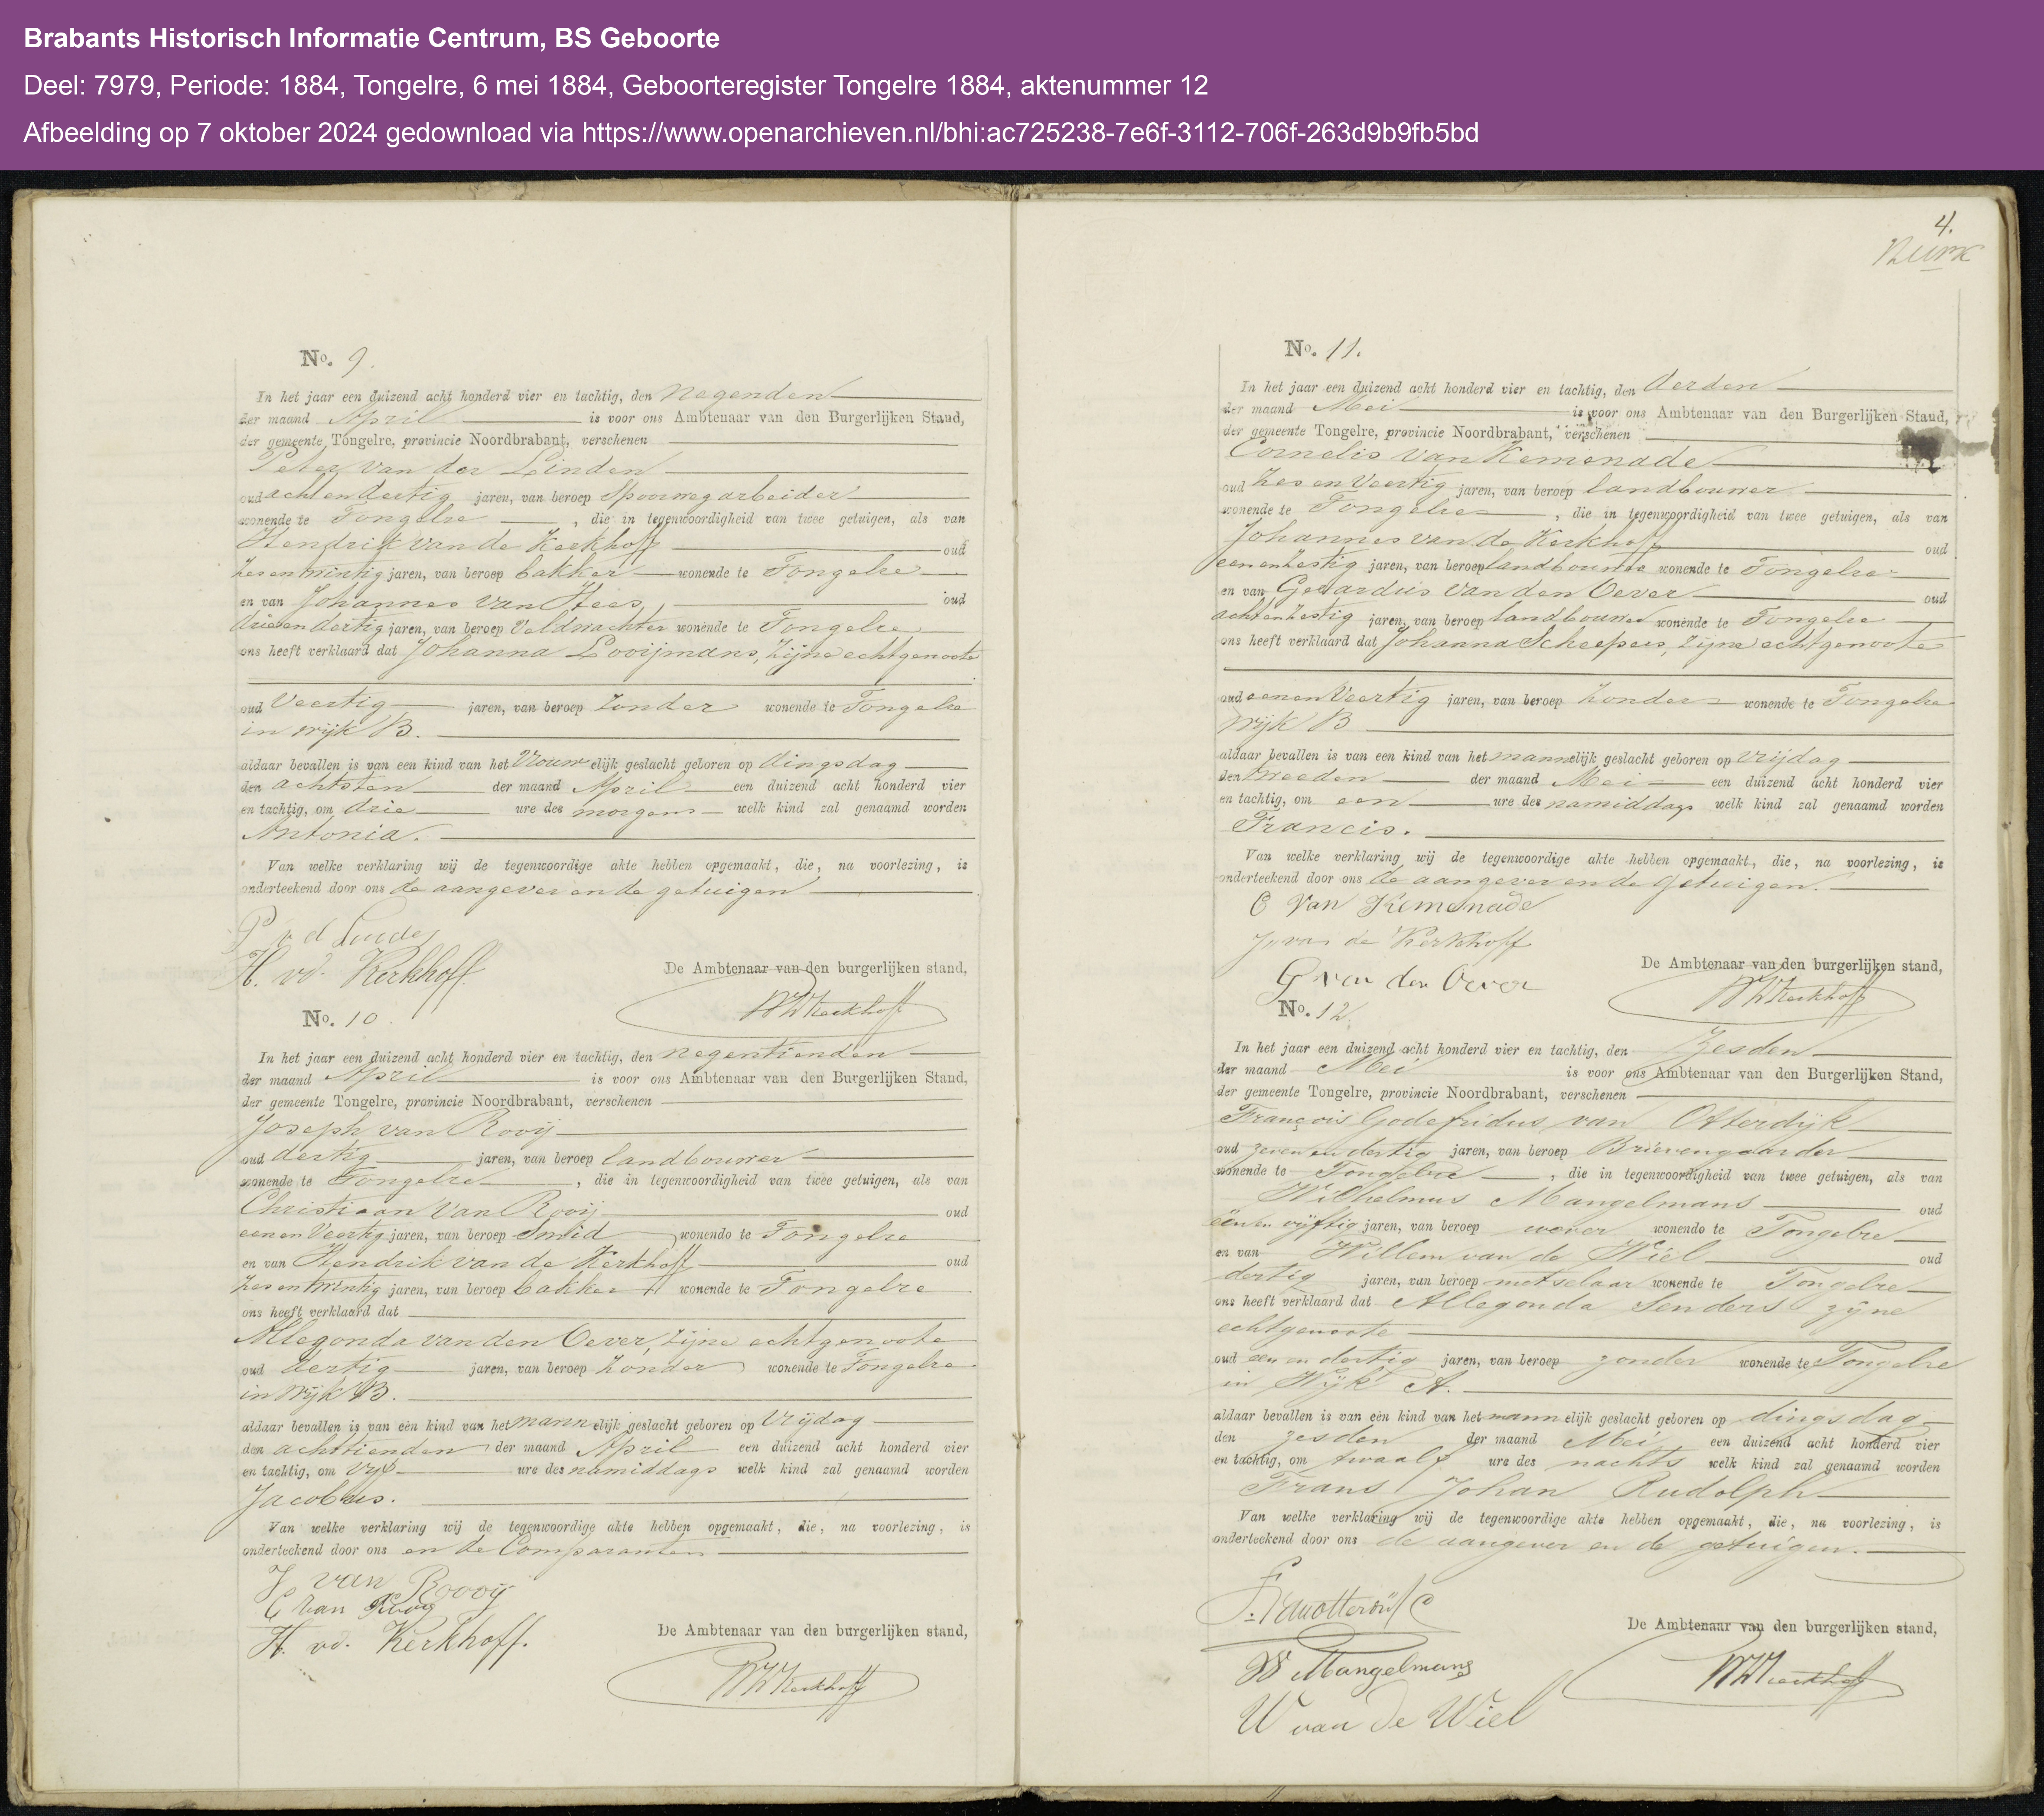 Brabants Historisch Informatie Centrum, BS Geboorte
Deel: 7979, Periode: 1884, Tongelre, 6 mei 1884, Geboorteregister Tongelre 1884, aktenummer 12
Afbeelding op 7 oktober 2024 gedownload via https://www.openarchieven.nl/bhi:ac725238-7e6f-3112-706f-263d9b9fb5bd
No. 9.
In het jaar een duizend acht honderd vier en tachtig, den negenden
der maand April is voor ons Ambtenaar van den Burgerlijken Stand,
der gemeente Tongelre, provincie Noordbrabant, verschenen
Peter van der Linden
oud achtendertig jaren, van beroep Spoorwegarbeider
wonende te Tongelre, die in tegenwoordigheid van twee getuigen, als van
Hendrik van de Kerkhoff oud
zesentwintig jaren, van beroep bakker wonende te Tongelre
en van Johannes van Hees, oud
drieendertig jaren, van beroep Veldwachter wonende te Tongelre
ons heeft verklaard dat Johanna Looijmans, zijne echtgenoote
oud Veertig jaren, van beroep zonder wonende te Tongelre
in wijk B.
aldaar bevallen is van een kind van het Vrouwelijk geslacht geboren op dingsdag
den achtsten der maand April een duizend acht honderd vier
en tachtig, om drie ure des morgens welk kind zal genaamd worden
Antonia.
Van welke verklaring wij de tegenwoordige akte hebben opgemaakt, die, na voorlezing, is
onderteekend door ons de aangever en de getuigen
P v d Linden
H. vd. Kerkhoff.
De Ambtenaar van den burgerlijken stand,
Kerkhoff
No. 10.
In het jaar een duizend acht honderd vier en tachtig, den negentienden
der maand April is voor ons Ambtenaar van den Burgerlijken Stand,
der gemeente Tongelre, provincie Noordbrabant, verschenen
Joseph van Rooij
oud dertig jaren, van beroep landbouwer
wonende te Tongelre, die in tegenwoordigheid van twee getuigen, als van
Christiaan Van Rooij oud
eenenVeertig jaren, van beroep Smid wonende te Tongelre
en van Hendrik van de Kerkhoff oud
zesentwintig jaren, van beroep bakker wonende te Tongelre
ons heeft verklaard dat
Allegonda van den Oever, zijne echtgenoote
oud dertig jaren, van beroep zonder wonende te Tongelre
in Wijk B.
aldaar bevallen is van een kind van het mannelijk geslacht geboren op Vrijdag
den achttienden der maand April een duizend acht honderd vier
en tachtig, om Vijf ure des namiddags welk kind zal genaamd worden
Jacobus.
Van welke verklaring wij de tegenwoordige akte hebben opgemaakt, die, na voorlezing, is
onderteekend door ons en de Comparanten
J van Roooij
C Van Rooij
H. vd. Kerkhoff.
De Ambtenaar van den burgerlijken stand,
Kerkhoff
4.
No. 11.
In het jaar een duizend acht honderd vier en tachtig, den derden
der maand Mei is voor ons Ambtenaar van den Burgerlijken Stand,
der gemeente Tongelre, provincie Noordbrabant, verschenen
Cornelis van Kemenade
oud zes en Veertig jaren, van beroep landbouwer
wonende te Tongelre, die in tegenwoordigheid van twee getuigen, als van
Johannes van de Kerkhoff oud
eenenzestig jaren, van beroep landbouwer wonende te Tongelre
en van Gerardus van den Oever oud
achtenzestig jaren, van beroep landbouwer wonende te Tongelre
ons heeft verklaard dat Johanna Scheepers, zijne echtgenoote
oud eenenVeertig jaren, van beroep zonder wonende te Tongelre
Wijk B
aldaar bevallen is van een kind van het mannelijk geslacht geboren op Vrijdag
den tweeden der maand Mei een duizend acht honderd vier
en tachtig, om een ure des namiddags welk kind zal genaamd worden
Francis.
Van welke verklaring wij de tegenwoordige akte hebben opgemaakt, die, na voorlezing, is
onderteekend door ons de aangever en de getuigen.
C van Kemenade
J van de Kerkhoff
G van den Oever
De Ambtenaar van den burgerlijken stand,
Kerkhoff
No. 12.
In het jaar een duizend acht honderd vier en tachtig, den zesden
der maand Mei is voor ons Ambtenaar van den Burgerlijken Stand,
der gemeente Tongelre, provincie Noordbrabant, verschenen
François Godefridus van Otterdijk
oud zevenendertig jaren, van beroep Brievengaarder
wonende te Tongelre, die in tegenwoordigheid van twee getuigen, als van
Wilhelmus Mangelmans oud
eenen vijftig jaren, van beroep wever wonende te Tongelre
en van Willem van de Wiel oud
dertig jaren, van beroep metselaar wonende te Tongelre
ons heeft verklaard dat Allegonda Senders zijne
echtgenoote
oud een en dertig jaren, van beroep zonder wonende te Tongelre
in Wijk A.
aldaar bevallen is van een kind van het mannelijk geslacht geboren op dingsdag
den zesden der maand Mei een duizend acht honderd vier
en tachtig, om twaalf ure des nachts welk kind zal genaamd worden
Frans Johan Rudolph
Van welke verklaring wij de tegenwoordige akte hebben opgemaakt, die, na voorlezing, is
onderteekend door ons de aangever en de getuigen.
W Mangelmans
W van de Wiel
De Ambtenaar van den burgerlijken stand,
Kerkhoff